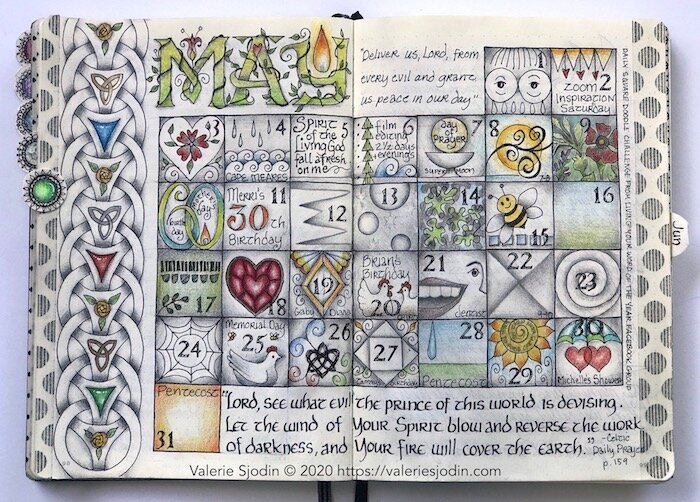 MAY
"Deliver us, Lord, from
every evil and grant
us peace in our day"
1
Zoom 2
Inspiration
Saturday
3
4
Cape Meares
Spirit 5
of the
Living God
fall afresh
on me
film 6
editing
2 1/2 days
evenings
day of 7
PRAYER
super moon
8
9
60
birth
day
Merri's 11
30th
Birthday
12
13
14
15
16
17
18
19
Brian's
Birthday
20
21
dentist
22
23
24
Memorial Day
25
26
27
28
Pentecost
29
30
Michelle's Shower
Pentecost
31
"Lord, see what evil the prince of this world is devising.
Let the wind of Your Spirit blow and reverse the work
of darkness, and Your fire will cover the earth."
-Celtic
Daily Prayer
p. 159
Jun
Valerie Sjodin © 2020 https://valeriesjodin.com